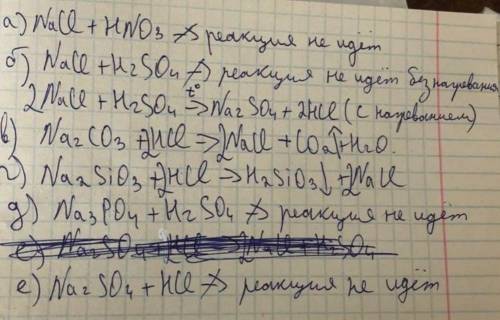 а) NaCl + HNO3 ⇏ реакция не идёт
б) NaCl + H2SO4 ⇏ реакция не идёт без нагревания
2NaCl + H2SO4 t°→ Na2SO4 + 2HCl (с нагреванием)
в) Na2CO3 + 2HCl → 2NaCl + CO2↑ + H2O.
г) Na2SiO3 + 2HCl → H2SiO3↓ + 2NaCl
д) Na3PO4 + H2SO4 ⇏ реакция не идёт
е) Na2SO4 + HCl ⇏ реакция не идёт